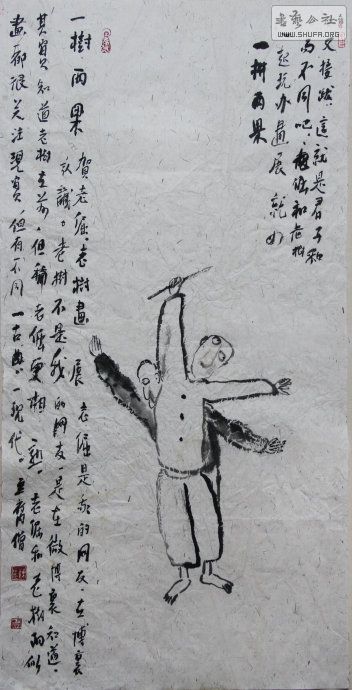 一樹兩果
賀老倔、老樹畫展 老倔是我的网友，在博裏
认識。老樹不是我的网友，是在微博裏知道。
其實知道老樹在前，但稱老倔更相熟。老倔和老樹兩
畫都很关注現實，但有不同，一古典，一現代。
這就是君子和
而不同吧，老倔和老樹
一起办畫展，就如
一树两果
書藝公社
WWW.SHUFA.ORG